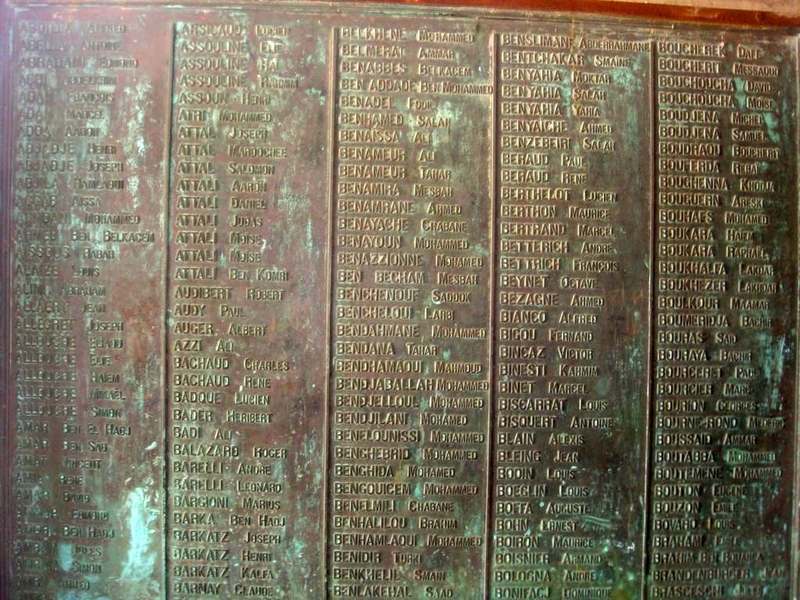 ABRAHAM EDMOND
ADDA AARON
ABDJE JOSEPH
AISSOUS
ALAIZE LOUIS
ALLEGRET JOSEPH
ALLOUCHE
ALLOUCHE
ALLOUCHE HAIEM
ALLOUCHE
ALLOUCHE SIMON
AMAR BEN EL HADJ
AMAR BEN SAID
BEN HADJ
JULES
SIMON
LUCIEN
ASSOULINE
ASSOULINE
ASSOULINE RAHMIM
ASSOUN HENRI
ATRI MOHAMMED
ATTAL JOSEPH
ATTAL MARDOCHEE
ATTAL SALOMON
ATTALI AARON
ATTALI DANIEL
ATTALI JUDAS
ATTALI MOÏSE
ATTALI MOÏSE
ATTALI BEN KOMRI
AUDIBERT ROBERT
AUDY PAUL
AUGER ALBERT
AZZI ALI
BACHAUD CHARLES
BACHAUD RENE
BADOUE LUCIEN
BADER HERIBERT
BADI ALI
BALAZARD ROGER
BARELLI ANDRE
BARELLI LEONARD
BARGIONI MARIUS
BARKA BEN HADJ
BARKATZ JOSEPH
BARKATZ HENRI
BARKATZ KALFA
BARNAY CLAUDE
BELKHENE MOHAMMED
BELMERAH AMMAR
BENABBES BELKACEM
BEN ADDADE BEN MOHAMMED
BENADEL
BENHAMED SALAH
BENAISSA ALI
BENAMEUR ALI
BENAMEUR TAHAR
BENAMIRA MESBAH
BENAMRANE AHMED
BENAYACHE CHABANE
BENAYOUN MOHAMMED
BENAZZIONNE MOHAMED
BEN BECHAM MESBAH
BENCHENOUF SADDOK
BENCHELOU LARBI
BENDAHMANE MOHAMMED
BENDANA TAHAR
BENDHAMAOUI MAHMOUD
BENDJABALLAH MOHAMMED
BENDJELLOUL MOHAMMED
BENDJILANI MOHAMED
BENELOUNISSI MOHAMMED
BENGHEBRID MOHAMMED
BENGHIDA MOHAMED
BENGOUICEM MOHAMMED
BENELMILI CHABANE
BENHALILOU BRAHIM
BENHAMLAOUI MOHAMMED
BENIDIR TURKI
BENKHELIL SMAÏN
BENLAKEHAL SAAD
BENSLIMANE ABDERRAHMANE
BENTCHAKAR SMAINE
BENYAHIA MOKTAR
BENYAHIA SALAH
BENYAHIA YAHIA
BENYAICHE AHMED
BENZEBEIRI SALAH
BERAUD PAUL
BERAUD RENE
BERTHELOT LUCIEN
BERTHON MAURICE
BERTRAND MARCEL
BETTERICH ANDRE
BETTRICH FRANÇOIS
BEYNET OCTAVE
BEZAGNE AHMED
BIANCO ALFRED
BIGOU FERNAND
BINCAZ VICTOR
BINESTI KARHIM
BINET MARCEL
BISCARRAT LOUIS
BISQUERT ANTOINE
BLAIN ALEXIS
BLEING JEAN
BODIN LOUIS
BOEGLIN LOUIS
BOETA AUGUSTE
BOHN ERNEST
BOIRON MAURICE
BOISNIER ARMAND
BOLOGNA ANDRE
BONIFACJ DOMINIQUE
BOUCHEREK
BOUCHERT MESSAOUD
BOUCHOUCHA DAVID
BOUCHOUCHA MOÏSE
BOUDJENA MICHEL
BOUDJENA SAMUEL
BOUDRAOU BOUCHERT
BOUFERDA
BOUGHENNA KHODJA
BOUGUERN ARESKI
BOUHAFS MOHAMED
BOUKARA
BOUKARA RAPHAEL
BOUKHALFA LAKDAR
BOUKHEZER LAKHDAR
BOULKOUR MAAMAR
BOUMERIDJA BACHIR
BOURAS SAID
BOURAYA BACHIR
BOURCERET PAUL
BOURCIER MARCEL
BOURION GEORGES
BOURNISSOND
BOUSSAID AMMAR
BOUTABBA MOHAMMED
BOUTEMENE MOHAMMED
BOUTON EUGENE
BOUZON EMILE
LOUIS
BRAHAM
BRAHIM BEN BOUAFIA
BRANDENBURGER JEAN